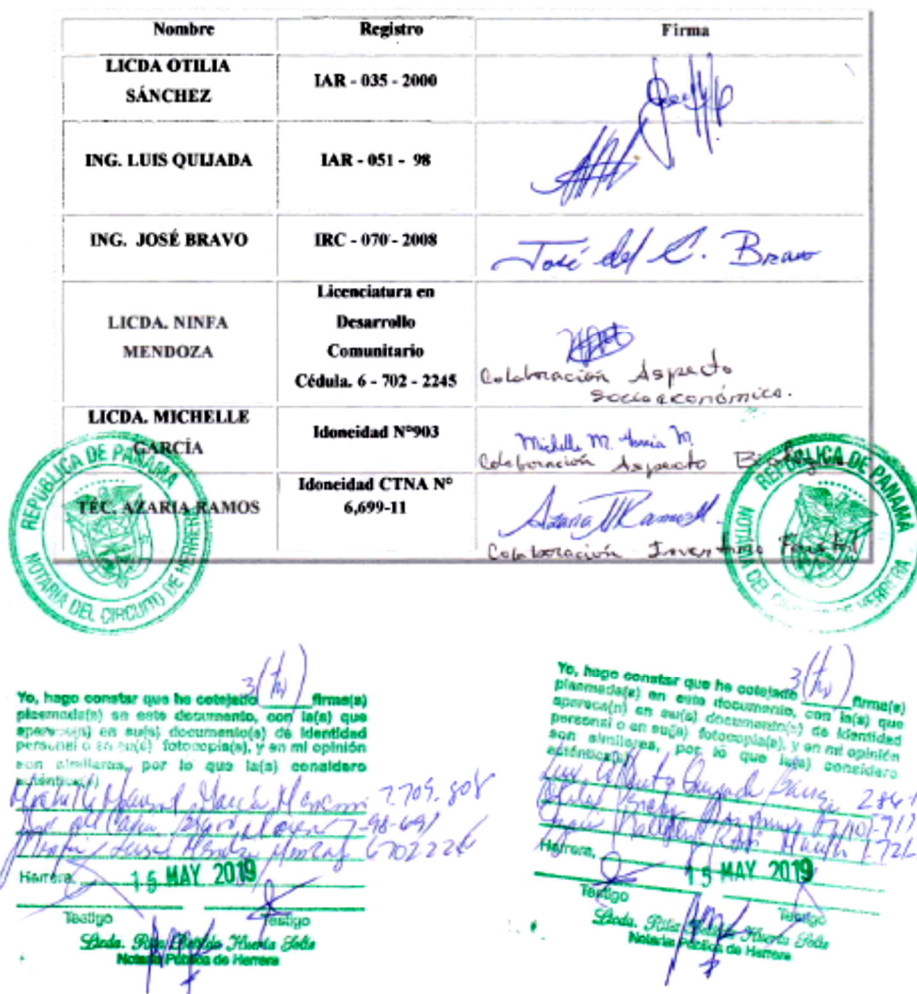 Nombre Registro Firma
LICDA OTILIA
SÁNCHEZ
IAR - 035 - 2000
ING. LUIS QUIJADA IAR - 051 - 98
ING. JOSÉ BRAVO IRC - 070 - 2008 José del C. Bravo
LICDA. NINFA
MENDOZA
Licenciatura en
Desarrollo
Comunitario
Cédula. 6 - 702 - 2245
Colaboración Aspecto
Socioeconómico.
LICDA. MICHELLE
GARCÍA
Idoneidad Nº903
Michelle M. García M.
Colaboración Aspecto
TEC. AZARIA RAMOS
Idoneidad CTNA Nº
6,699-11
Colaboración Inventario Forestal
REPÚBLICA DE PANAMA
NOTARIA DEL CIRCUITO DE HERRERA
REPÚBLICA DE PANAMA
NOTARIA DEL CIRCUITO DE HERRERA
Yo, hago constar que he cotejado 3 firma(s)
plasmada(s) en este documento, con la(s) que
aparece(n) en su(s) documento(s) de identidad
personal o en su(s) fotocopia(s), y en mi opinión
son similares, por lo que la(s) considero
auténtica(s)
7-98-691
Herrera, 15 MAY 2019
Testigo Testigo
Licda. Rita Huerta Solis
Notaria Pública de Herrera
Yo, hago constar que he cotejado 3 firma(s)
plasmada(s) en este documento, con la(s) que
aparece(n) en su(s) documento(s) de identidad
personal o en su(s) fotocopia(s), y en mi opinión
son similares, por lo que la(s) considero
auténtica(s)
Herrera, 15 MAY 2019
Testigo Testigo
Licda. Rita Huerta Solis
Notaria Pública de Herrera